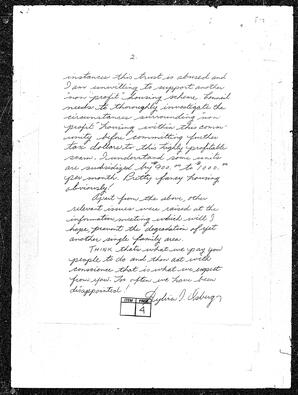 2.
instances this trust is abused and
I am unwilling to support another
"non-profit" housing scheme. Council
needs to thoroughly investigate the
circumstances surrounding "non
profit" housing within this comm-
unity before committing further
tax dollars to this highly profitable
scam. I understand some units
are subsidized by $900.00 to 1000.00
per month. Pretty fancy housing
obviously!
Apart from the above, other
relevant issues were raised at the
information meeting which will I
hope prevent the degradation of yet
another single family area.
THINK that's what we pay you
people to do and then act with
conscience that is what we expect
from you. Too often we have been
disappointed!
Sylvia I.
ITEM PAGE
4